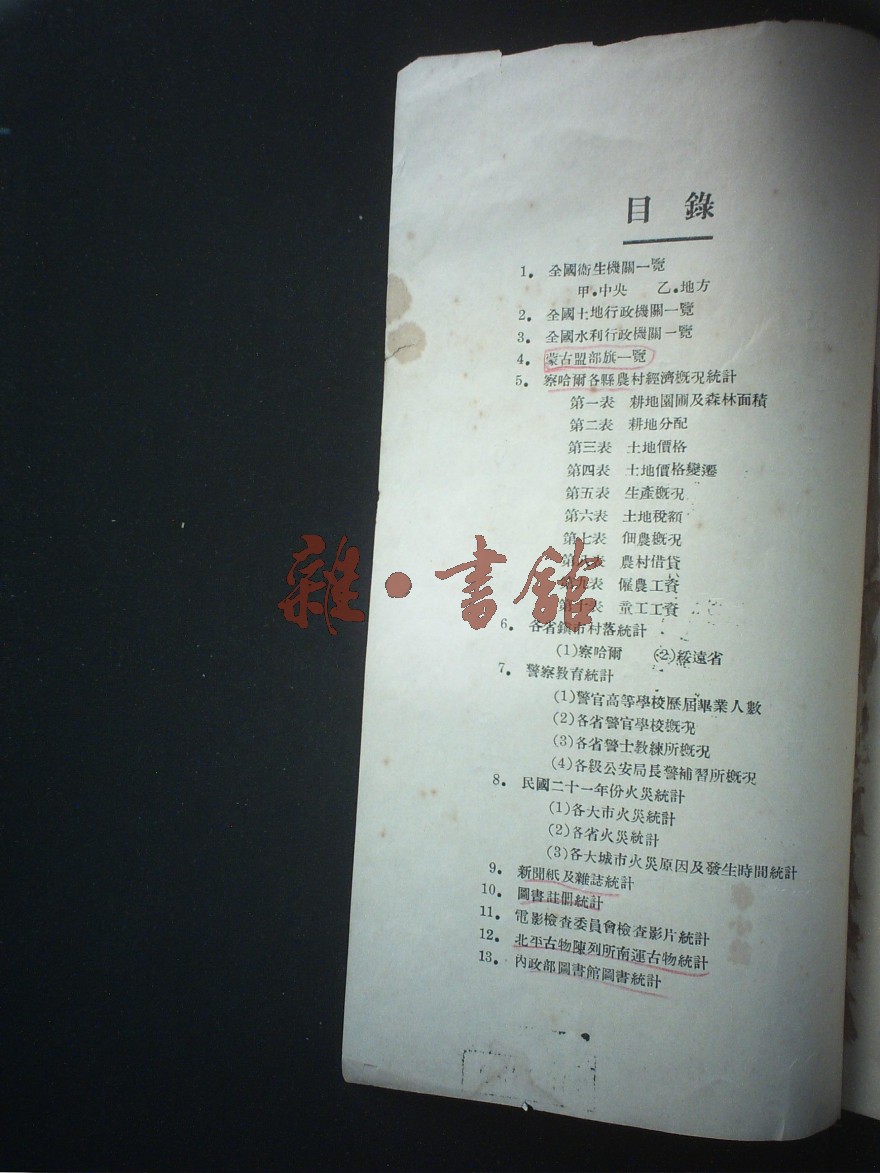 目錄
1. 全國衛生機關一覽
甲.中央 乙.地方
2. 全國土地行政機關一覽
3. 全國水利行政機關一覽
4. 蒙古盟部旗一覽
5. 察哈爾各縣農村經濟概况統計
第一表 耕地園圃及森林面積
第二表 耕地分配
第三表 土地價格
第四表 土地價格變遷
第五表 生產概况
第六表 土地稅額
第七表 佃農概况
第八表 農村借貸
第九表 僱農工資
第十表 童工工資
雜·書館
6. 各省鎮市村落統計
(1)察哈爾 (2)綏遠省
7. 警察教育統計
(1)警官高等學校歷屆畢業人數
(2)各省警官學校概况
(3)各省警士教練所概况
(4)各級公安局長警補習所概况
8. 民國二十一年份火災統計
(1)各大市火災統計
(2)各省火災統計
(3)各大城市火災原因及發生時間統計
9. 新聞紙及雜誌統計
10. 圖書註冊統計
11. 電影檢查委員會檢查影片統計
12. 北平古物陳列所南運古物統計
13. 內政部圖書館圖書統計